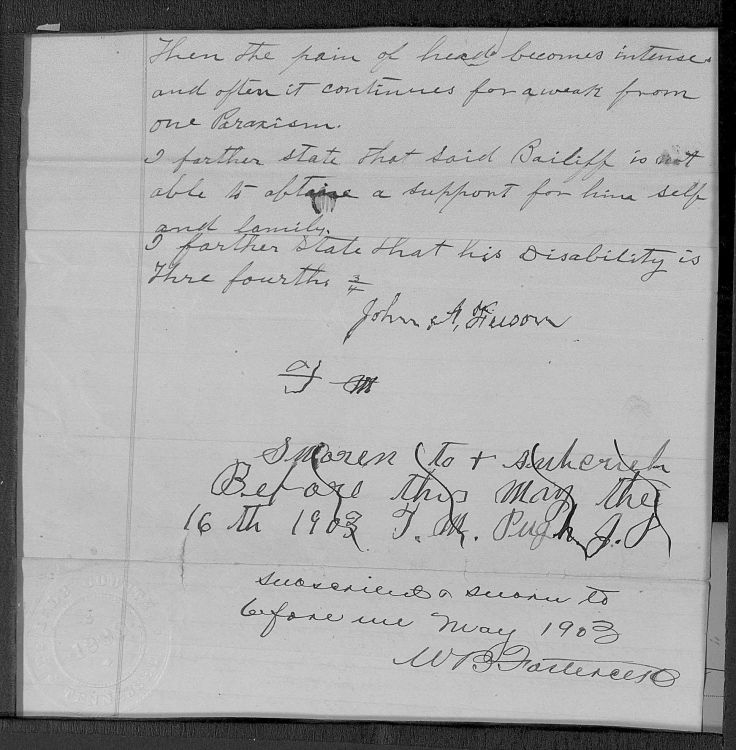 Then the pain of head becomes intense
and often it continues for a weak from
one Paraxism.
I farther state that said Bailiff is not
able to obtaine a support for him self
and family.
I farther state that his Disability is
Thre fourths 3/4
John A,
Sworen to + subcrieb
Before this May the
16 th 1903 T. M. Pugh. J. P
subscribed & sworn to
before me May 1903
W B